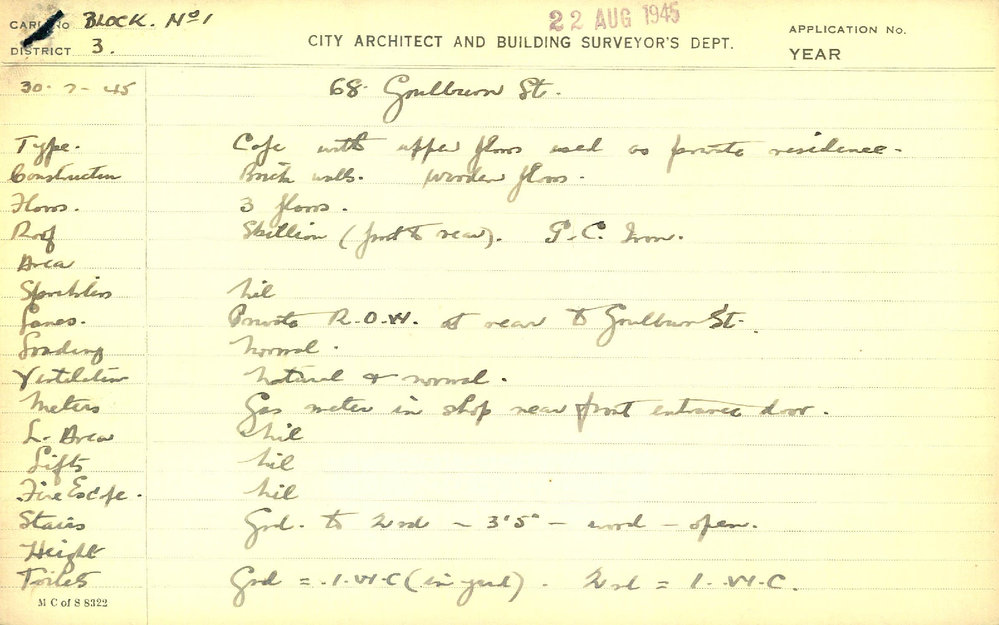 CARD No BLOCK. No 1
22 AUG 1945
APPLICATION No.
DISTRICT 3.
CITY ARCHITECT AND BUILDING SURVEYOR'S DEPT.
YEAR
30-7-45 68 Goulburn St.
Type. Cafe with upper floors used as private residence.
Construction Brick walls. Wooden floors.
Floors. 3 floors.
Roof Skillion (front to rear). G.C. Iron.
Area
Sprinklers Nil
Lanes. Private R.O.W. at rear to Goulburn St.
Loading Normal.
Ventilation Natural & normal.
Meters Gas meter in shop near front entrance door.
L. Area Nil
Lifts Nil
Fire Escape. Nil
Stairs Grd. to 2nd - 3'5" - wood - open.
Height
Toilets Grd = 1. W.C (in yard). 2nd = 1. W.C.
M C of S 8322